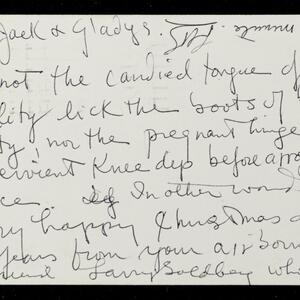 Jack & Gladys.
not the candied tongue of
lity lick the boots of
ty nor the pregnant hinge
ervient Knee dip before arro
ce. In other word
ry happy Christmas a
years from your air born
Larry Goldbey wh